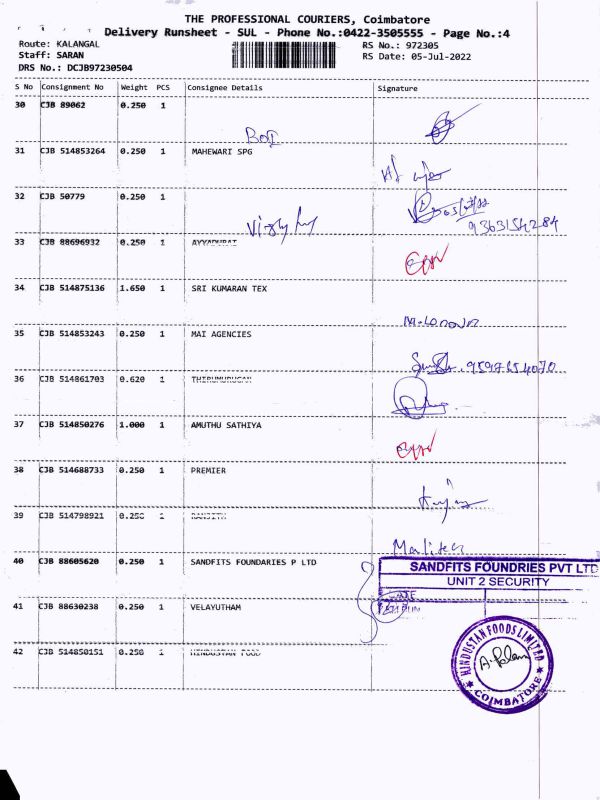 THE PROFESSIONAL COURIERS, Coimbatore
Delivery Runsheet - SUL - Phone No.:0422-3505555 - Page No.:4
Route: KALANGAL
RS No.: 972305
Staff: SARAN
RS Date: 05-Jul-2022
DRS No.: DCJB97230504
S No Consignment No Weight PCS Consignee Details Signature
30 CJB 89062 0.250 1
BOI
31 CJB 514853264 0.250 1 MAHEWARI SPG
32 CJB 50779 0.250 1
9363154284
33 CJB 88696932 0.250 1 AYYADURAI
34 CJB 514875136 1.650 1 SRI KUMARAN TEX
35 CJB 514853243 0.250 1 MAI AGENCIES
36 CJB 514861703 0.620 1 THIRUMURUGAN
37 CJB 514850276 1.000 1 AMUTHU SATHIYA
38 CJB 514688733 0.250 1 PREMIER
39 CJB 514798921 0.250 1 RANJITH
40 CJB 88605620 0.250 1 SANDFITS FOUNDARIES P LTD
SANDFITS FOUNDRIES PVT LTD
UNIT 2 SECURITY
DATE
41 CJB 88630238 0.250 1 VELAYUTHAM
42 CJB 514850151 0.250 1 HINDUSTAN FOOD
HINDUSTAN FOODS LIMITED
COIMBATORE